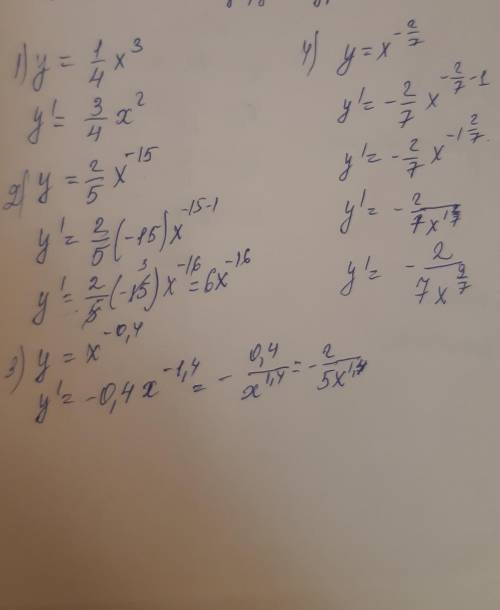 1) y = 1/4 x^3
y' = 3/4 x^2
2) y = 2/5 x^-15
y' = 2/5 (-15) x^-15-1
y' = 2/5 (-15) 3 x^-16 = 6x^-16
3) y = x^-0,4
y' = -0,4x^-1,4 = - 0,4/x^1,4 = - 2/5x^1,4
4) y = x^-2/7
y' = - 2/7 x^-2/7-1
y' = - 2/7 x^-1 2/7
y' = - 2/7x^1 2/7
y' = - 2/7x^9/7